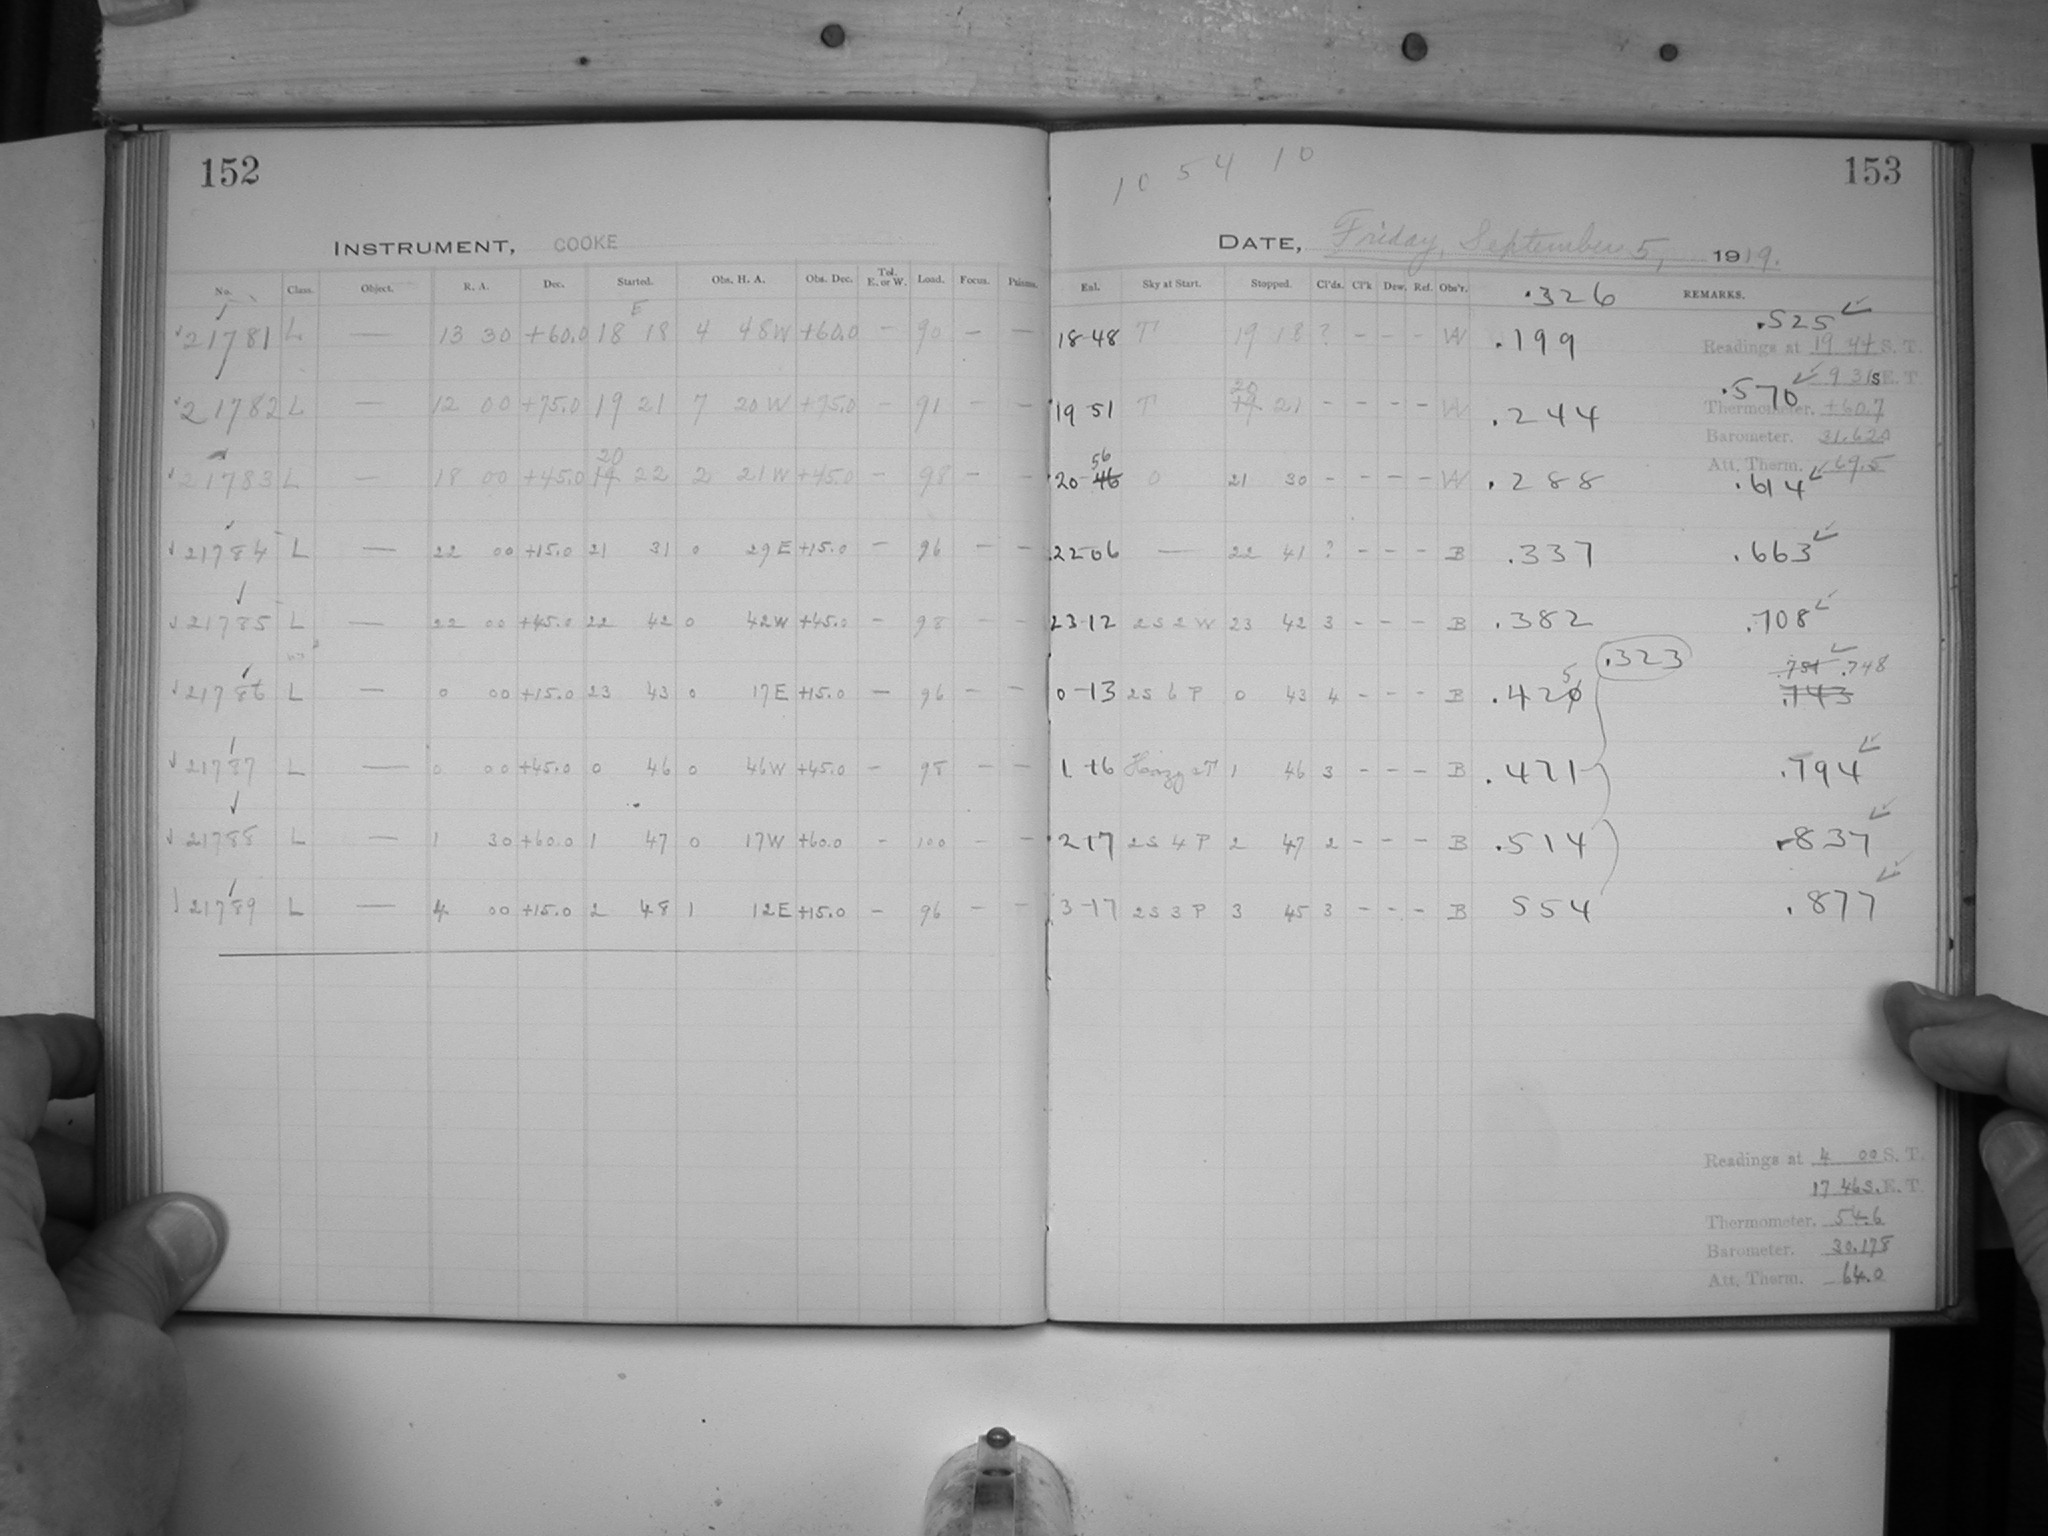 152
153
10 54 10
INSTRUMENT, COOKE
DATE, Friday, September 5, 1919.
No. Class. Object. R. A. Dec. Started. Obs. H. A. Obs. Dec. Tel. E. or W. Load. Focus. Exl. Sky at Start. Stopped. Cl'ds. Cl'k Dew. Ref. Obs'r. .326 REMARKS.
E
21781 L — 13 30 +60.0 18 18 4 48W +60.0 - 90 - - 18-48 T 19 18 ? - - - W .199 .525
Readings at 19 44 S. T.
9 31s E. T.
20
21782 L — 12 00 +75.0 19 21 7 20W +75.0 - 91 - - 19 51 T 19 21 - - - - W .244 .570
Thermometer. +60.7
Barometer. 31.620
Att. Therm. 69.5
20 56
21783 L — 18 00 +45.0 19 22 2 21W +45.0 - 98 - - 20-46 0 21 30 - - - - W .288 .614
21784 L — 22 00 +15.0 21 31 0 29E +15.0 - 96 - - 22 06 — 22 41 ? - - - B .337 .663
21785 L — 22 00 +45.0 22 42 0 42W +45.0 - 98 - - 23-12 2S2W 23 42 3 - - - B .382 .708
.323
.751 .748
5
21786 L — 0 00 +15.0 23 43 0 17E +15.0 - 96 - - 0-13 2S6P 0 43 4 - - - B .426 .743
21787 L — 0 00 +45.0 0 46 0 46W +45.0 - 98 - - 1-16 Hazy 2T 1 46 3 - - - B .471 .794
21788 L — 1 30 +60.0 1 47 0 17W +60.0 - 100 - - 2-17 2S4P 2 47 2 - - - B .514 .837
21789 L — 4 00 +15.0 2 48 1 12E +15.0 - 96 - - 3-17 2S3P 3 45 3 - - - B 554 .877
Readings at 4 00 S. T.
17 46s. E. T.
Thermometer. 54.6
Barometer. 30.178
Att. Therm. 64.0